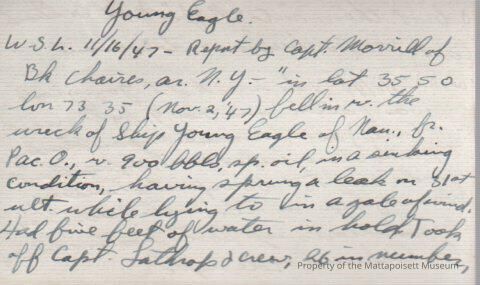 Young Eagle.
W.S.L. 11/16/47 - Report by Capt. Morrill of
Bk Chaires, ar. N.Y. - "in lat 35 50
lon 73 35 (Nov. 2, '47) fell in w. the
wreck of Ship Young Eagle of Nan., fr.
Pac. O., w. 900 bbls. sp. oil, in a sinking
condition, having sprung a leak on 31st
ult. while lying to in a gale of wind.
Had five feet of water in hold. Took
off Capt. Lathrop & crew, 26 in number,
Property of the Mattapoisett Museum